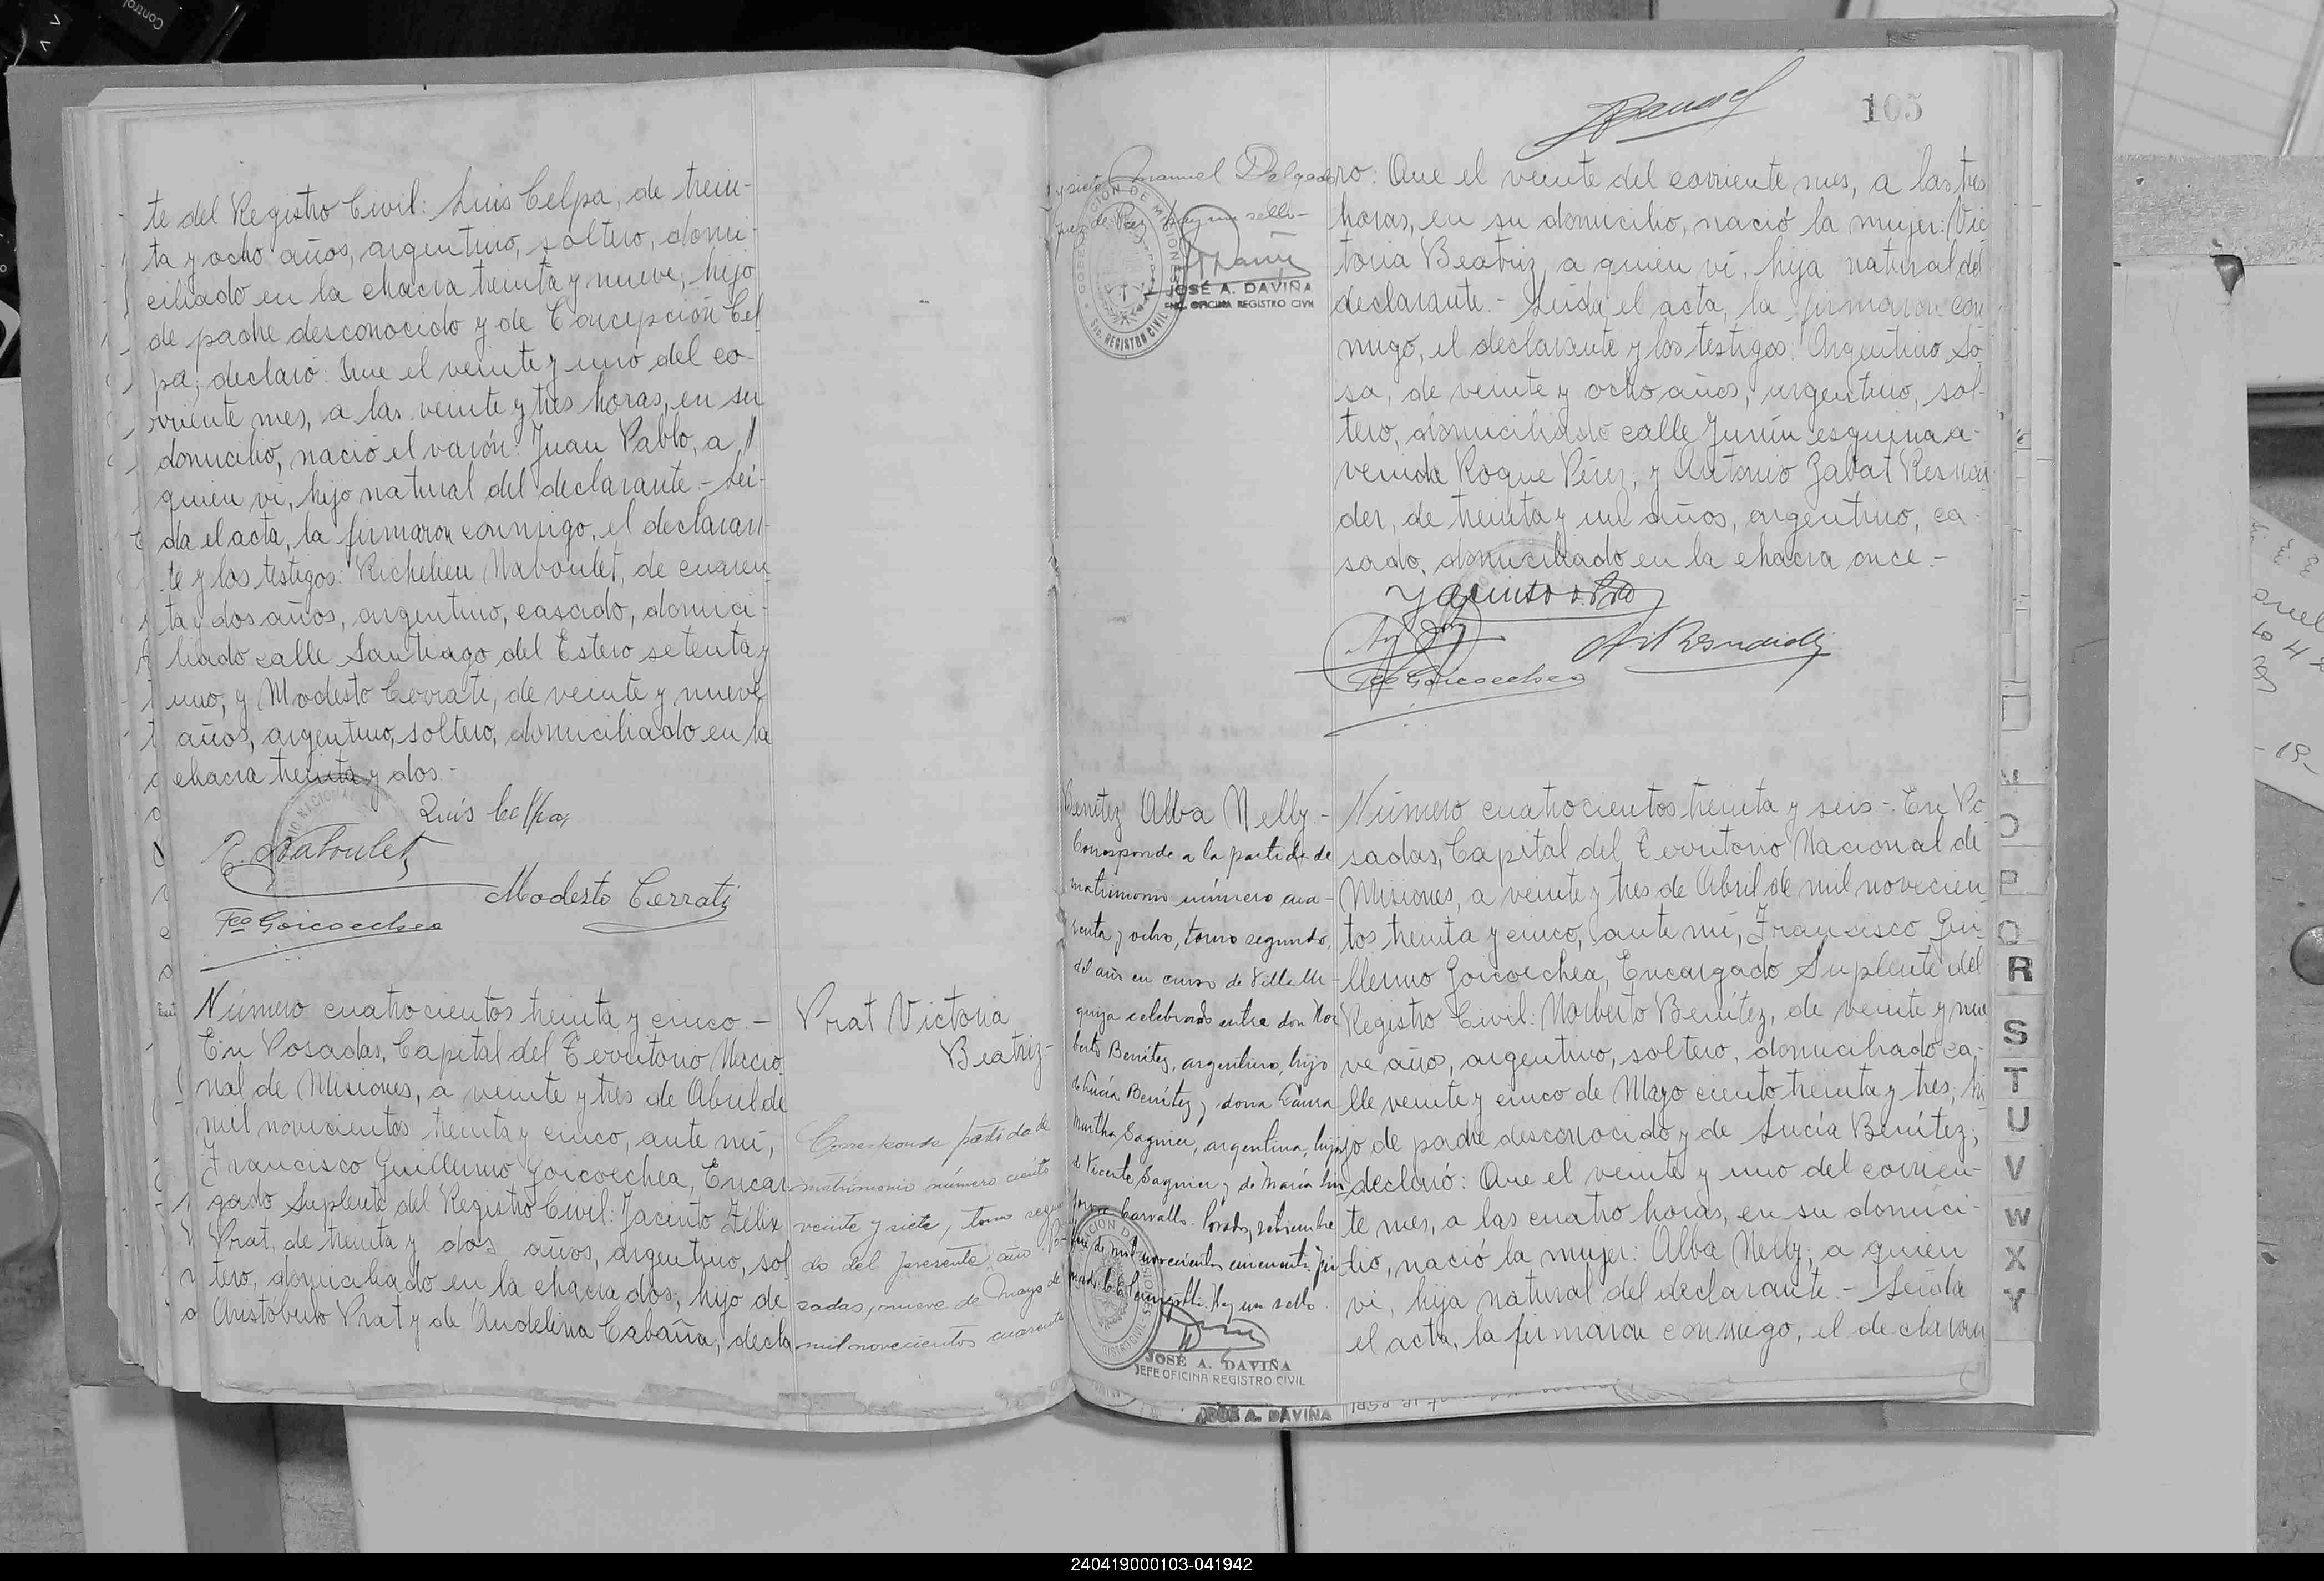 te del Registro Civil: Luis Celpa, de trein-
ta y ocho años, argentino, soltero, domi-
ciliado en la chacra treinta y nueve, hijo
de padre desconocido y de Concepción Cel
pa; declaró: Que el veinte y uno del co-
rriente mes, a las veinte y tres horas, en su
domicilio, nació el varón: Juan Pablo, a
quien vi, hijo natural del declarante.- Leí-
da el acta, la firmaron conmigo, el declaran-
te y los testigos: Richelieu Naboulet, de cuaren
ta y dos años, argentino, casado, domici-
liado calle Santiago del Estero setenta y
uno, y Modesto Cerrati, de veinte y nueve
años, argentino, soltero, domiciliado en la
chacra treinta y dos.-
Luis Celpa
R. Naboulet
Modesto Cerrati
Fco Goicoechea
Número cuatrocientos treinta y cinco.-
En Posadas, Capital del Territorio Nacio
nal de Misiones, a veinte y tres de Abril de
mil novecientos treinta y cinco, ante mí,
Francisco Guillermo Goicoechea, Encar
gado Suplente del Registro Civil: Jacinto Félix
Prat, de treinta y dos años, argentino, sol
tero, domiciliado en la chacra dos, hijo de
Aristóbulo Prat y de Andelina Cabaña; decla
Prat Victoria
Beatriz-
Corresponde partida de
matrimonio número ciento
veinte y siete, tomo segun
do del presente año Po-
sadas, nueve de Mayo de
mil novecientos cuarenta
105
y siete Manuel Delgado
Juez de Paz Hay un sello-
GOBERNACIÓN DE MISIONES
REGISTRO CIVIL
JOSÉ A. DAVIÑA
ENC. OFICINA REGISTRO CIVIL
ro: Que el veinte del corriente mes, a las tres
horas, en su domicilio, nació la mujer: Vic
toria Beatriz, a quien vi, hija natural del
declarante.- Leída el acta, la firmaron con
migo, el declarante y los testigos: Argentino So
sa, de veinte y ocho años, argentino, sol-
tero, domiciliado calle Junín esquina a-
venida Roque Pérez, y Antonio Zabat Resnai
der, de treinta y un años, argentino, ca-
sado, domiciliado en la chacra once.-
Jacinto
Fco Goicoechea
Benítez Alba Nelly.-
Corresponde a la partida de
matrimonio número cua-
renta y ocho, tomo segundo,
del año en curso de Villa Ur-
quiza celebrado entre don Nor
berto Benítez, argentino, hijo
de Lucía Benítez y doña Laura
Martha Sagnier, argentina, hija
de Vicente Sagnier y de María
Carvallo. Posadas, setiembre
de mil novecientos cincuenta.
Hay un sello.
JOSÉ A. DAVIÑA
JEFE OFICINA REGISTRO CIVIL
JOSÉ A. DAVIÑA
Número cuatrocientos treinta y seis.- En Po
sadas, Capital del Territorio Nacional de
Misiones, a veinte y tres de Abril de mil novecien
tos treinta y cinco, ante mí, Francisco Gui-
llermo Goicoechea, Encargado Suplente del
Registro Civil: Norberto Benítez, de veinte y nue
ve años, argentino, soltero, domiciliado ca-
lle veinte y cinco de Mayo ciento treinta y tres, hi-
jo de padre desconocido y de Lucía Benítez;
declaró: Que el veinte y uno del corrien-
te mes, a las cuatro horas, en su domici-
lio, nació la mujer: Alba Nelly, a quien
vi, hija natural del declarante.- Leída
el acta, la firmaron conmigo, el declaran
O
P
Q
R
S
T
U
V
W
X
Y
Control
240419000103-041942